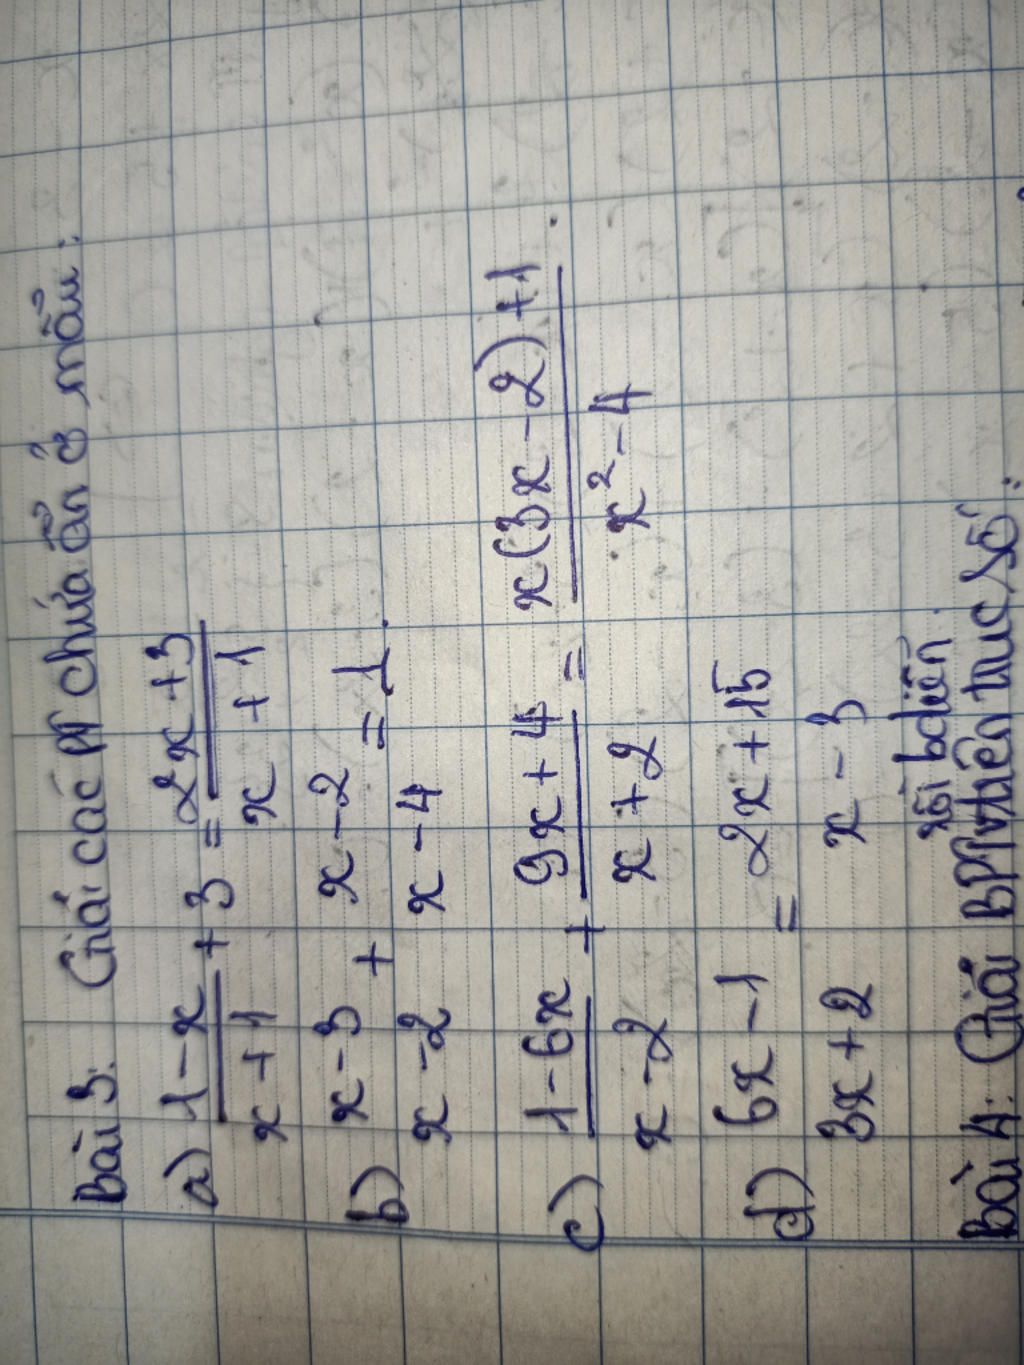 Bài 3: Giải các PT chứa ẩn ở mẫu:
a) (1-x)/(x+1) + 3 = (2x+3)/(x+1)
b) (x-3)/(x-2) + (x-2)/(x-4) = 1.
c) (1-6x)/(x-2) + (9x+4)/(x+2) = (x(3x-2)+1)/(x²-4)
d) (6x-1)/(3x+2) = (2x+15)/(x-3)
rồi bdiễn
Bài 4: Giải BPT trên trục số: